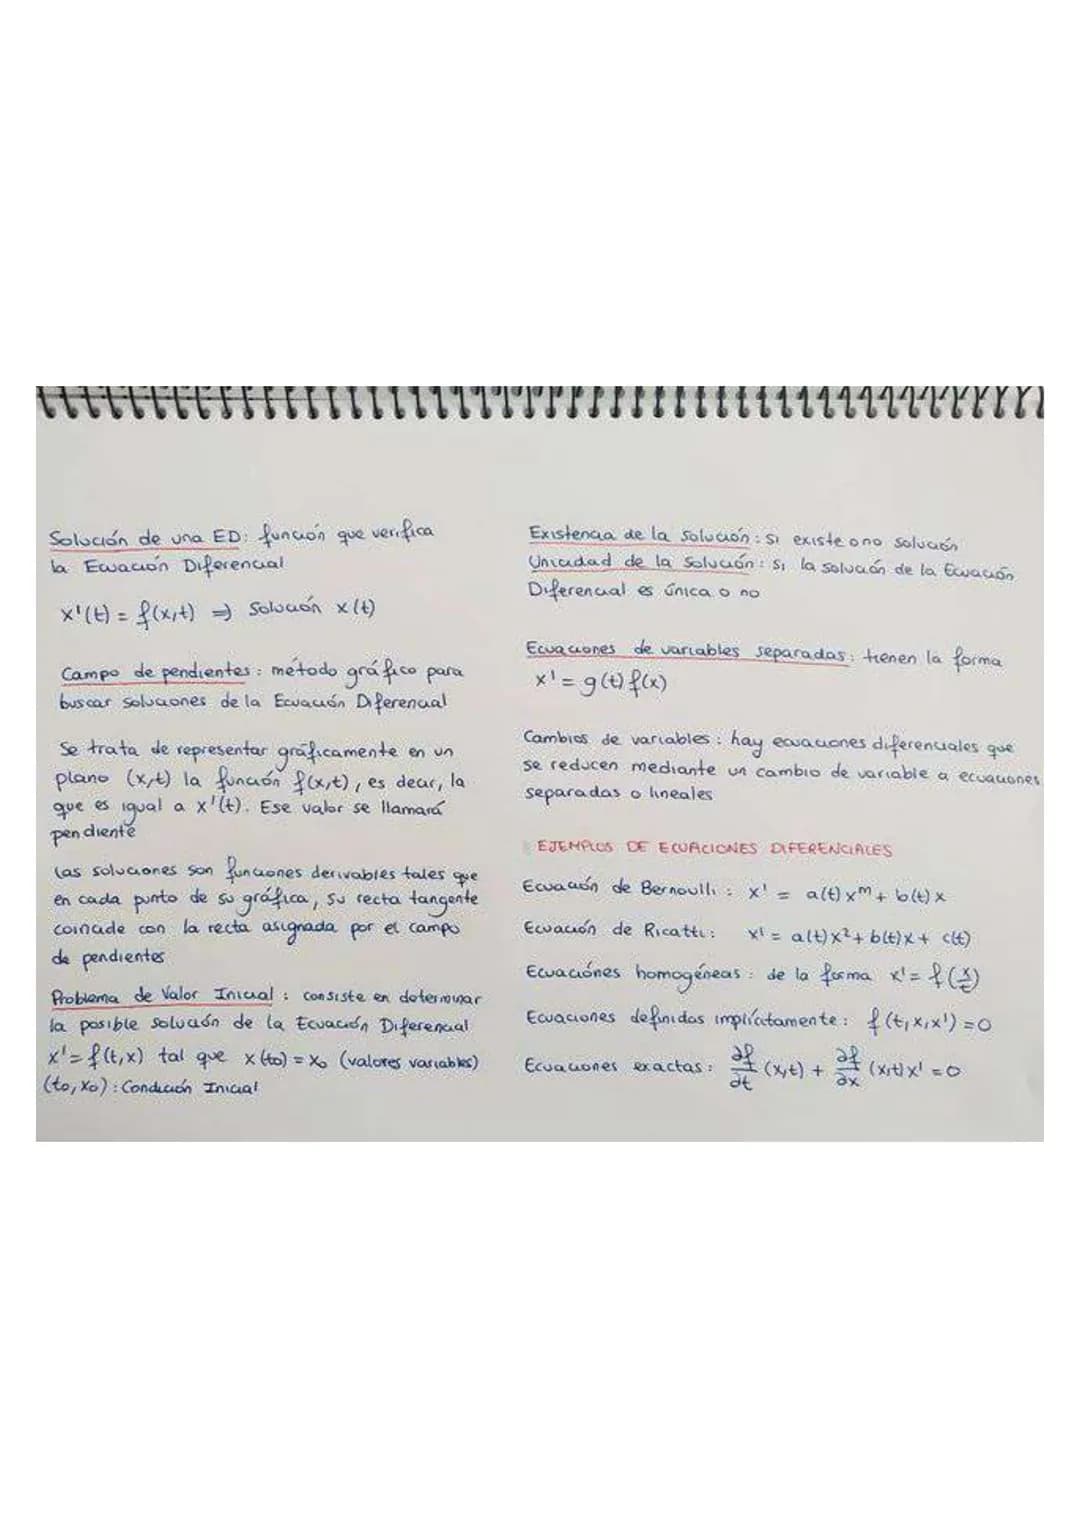 Solución de una ED: función que verifica
la Ecuación Diferencial
x'(t) = f(x,t) ⇒ Solución x(t)
Campo de pendientes: método gráfico para
buscar soluciones de la Ecuación Diferencial
Se trata de representar gráficamente en un
plano (x,t) la función f(x,t), es decir, la
que es igual a x'(t). Ese valor se llamará
pendiente
Las soluciones son funciones derivables tales que
en cada punto de su gráfica, su recta tangente
coincide con la recta asignada por el campo
de pendientes
Problema de Valor Inicial: consiste en determinar
la posible solución de la Ecuación Diferencial
x' = f(t,x) tal que x(t₀) = x₀ (valores variables)
(t₀, x₀): Condición Inicial
Existencia de la solución: si existe o no solución
Unicidad de la solución: si la solución de la Ecuación
Diferencial es única o no
Ecuaciones de variables separadas: tienen la forma
x' = g(t) f(x)
Cambios de variables: hay ecuaciones diferenciales que
se reducen mediante un cambio de variable a ecuaciones
separadas o lineales
EJEMPLOS DE ECUACIONES DIFERENCIALES
Ecuación de Bernoulli: x' = a(t) xᵐ + b(t) x
Ecuación de Ricatti: x' = a(t) x² + b(t) x + c(t)
Ecuaciónes homogéneas: de la forma x' = f(x/t)
Ecuaciones definidas implícitamente: f(t, x, x') = 0
Ecuaciones exactas: ∂f/∂t (x,t) + ∂f/∂x (x,t) x' = 0